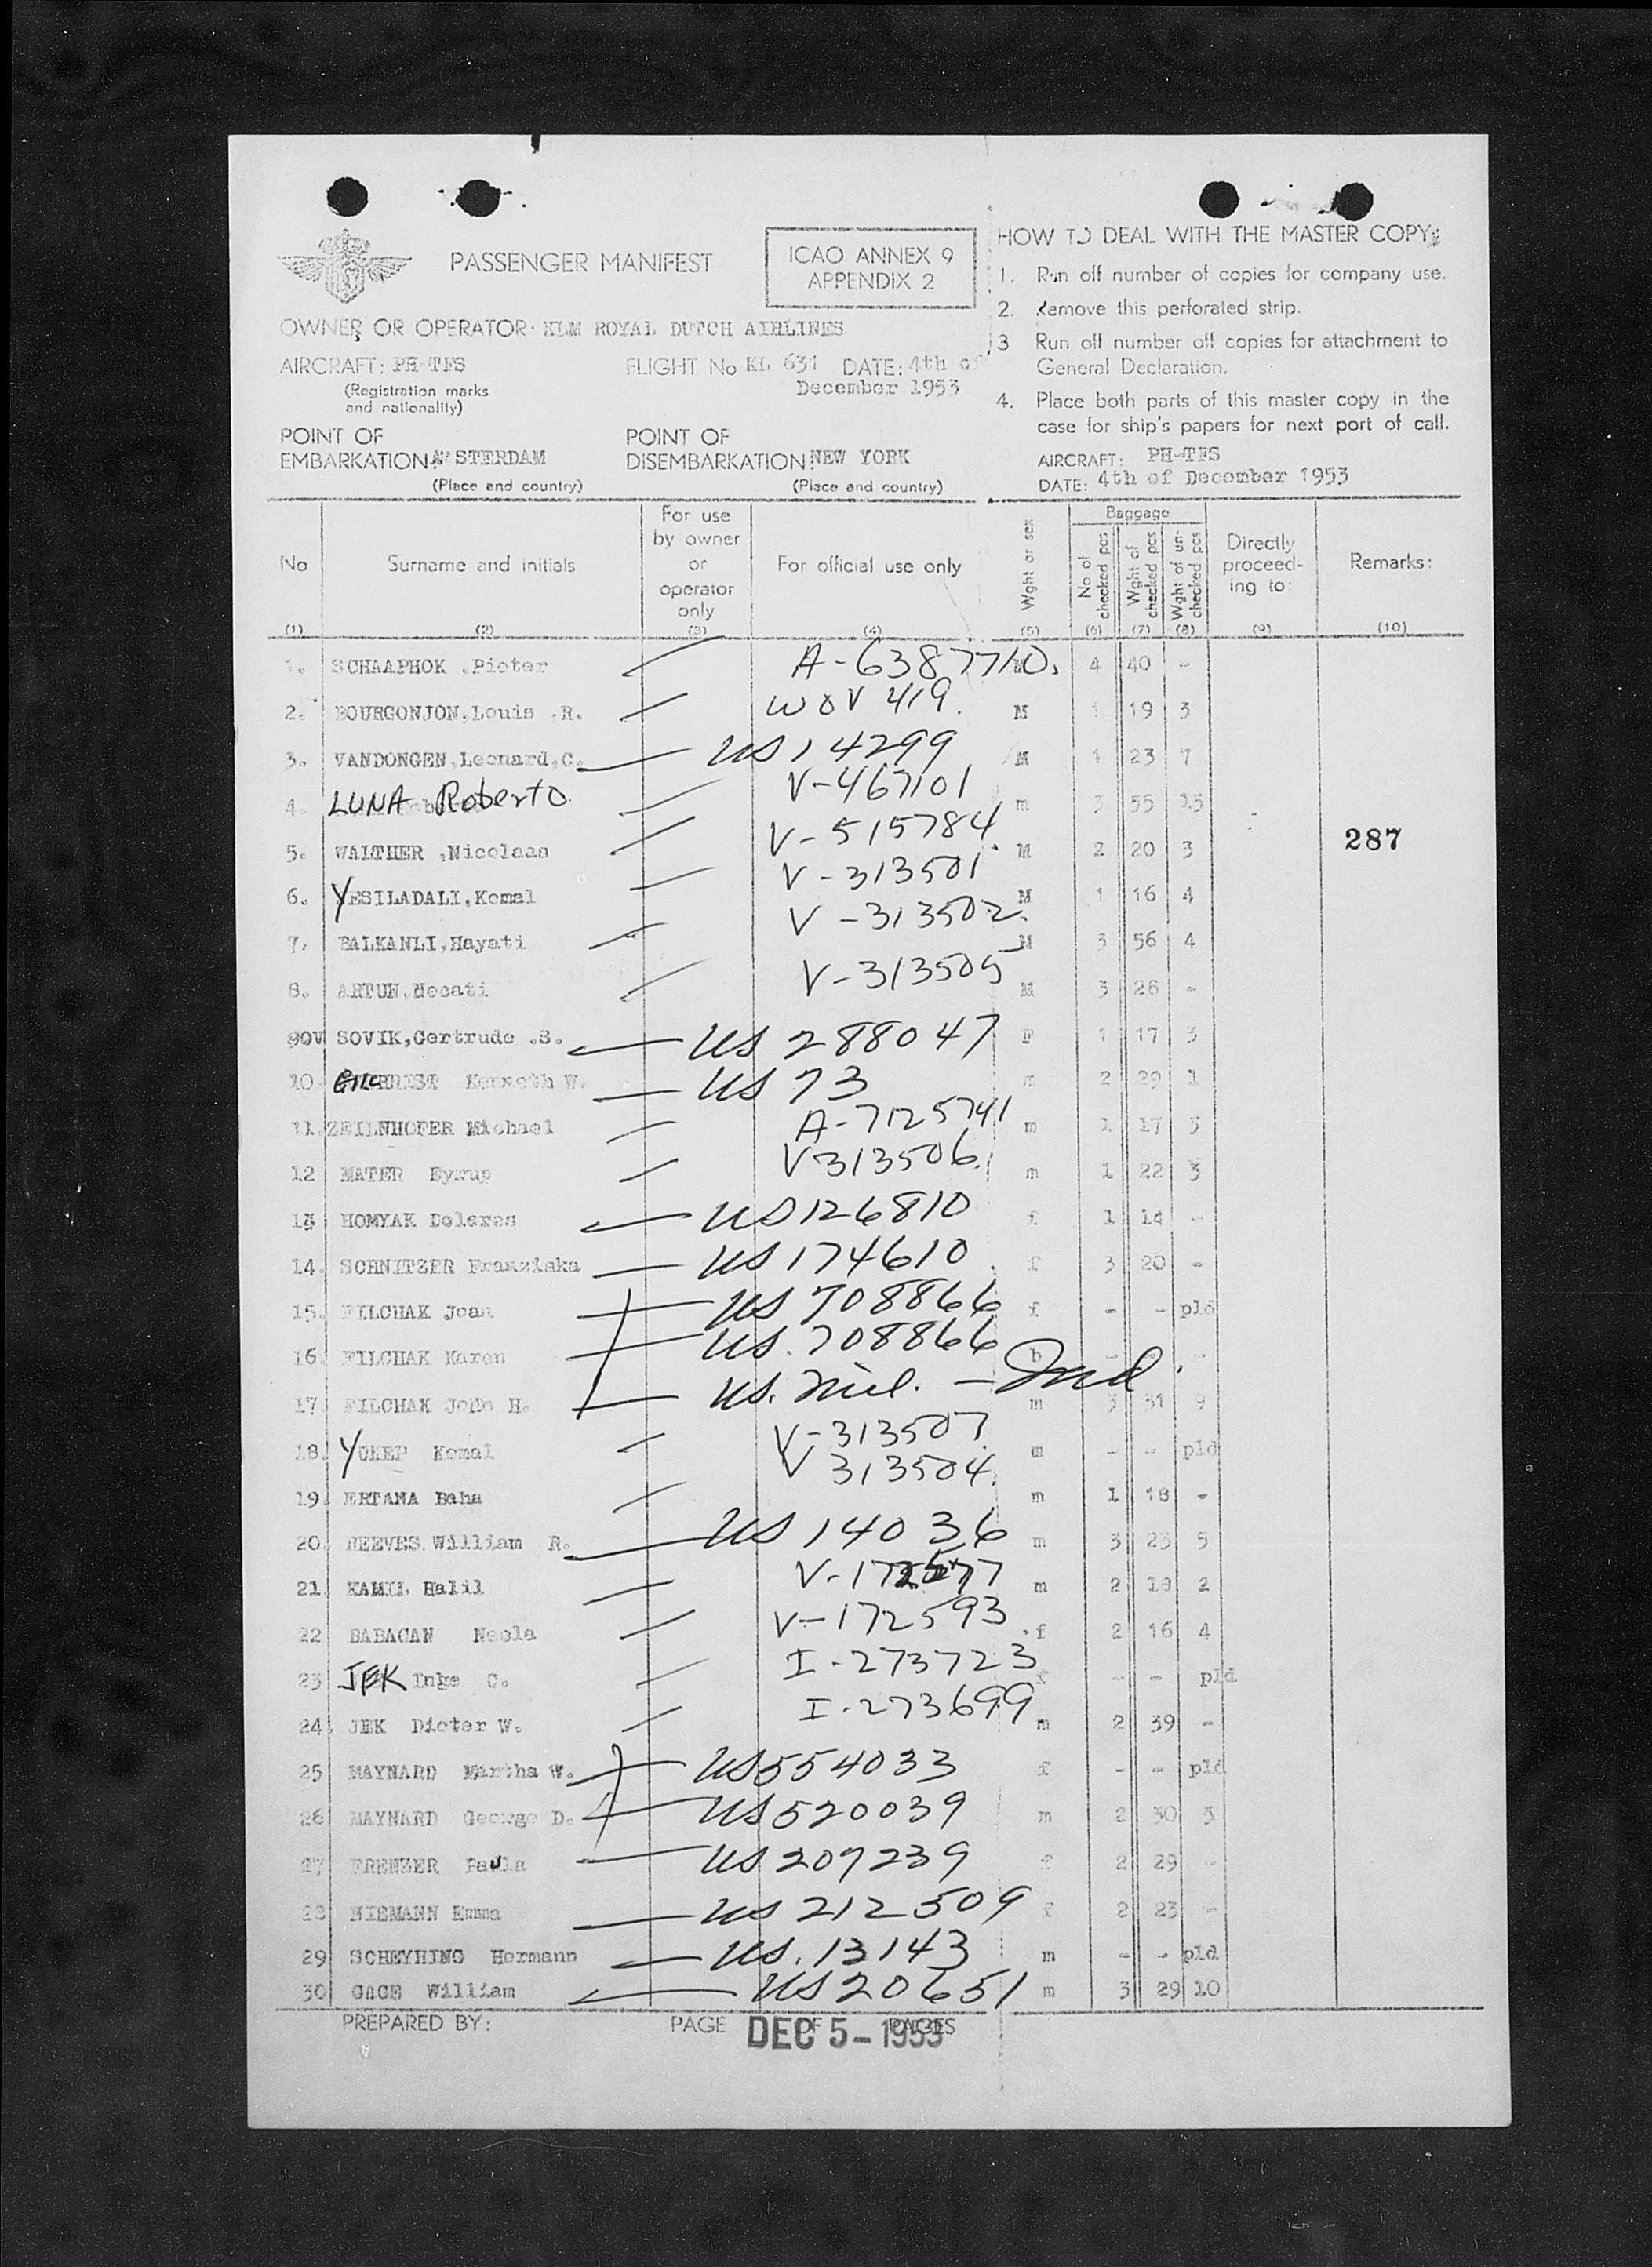 PASSENGER MANIFEST
ICAO ANNEX 9
APPENDIX 2
OWNER OR OPERATOR: KLM ROYAL DUTCH AIRLINES
AIRCRAFT: PH-TFS
(Registration marks
and nationality)
FLIGHT No KL 631 DATE: 4th of
December 1953
POINT OF
EMBARKATION: AMSTERDAM
(Place and country)
POINT OF
DISEMBARKATION: NEW YORK
(Place and country)
HOW TO DEAL WITH THE MASTER COPY:
1. Run off number of copies for company use.
2. Remove this perforated strip.
3 Run off number off copies for attachment to
General Declaration.
4. Place both parts of this master copy in the
case for ship's papers for next port of call.
AIRCRAFT: PH-TFS
DATE: 4th of December 1953
No
(1)
Surname and initials
(2)
For use
by owner
or
operator
only
(3)
For official use only
(4)
Wght or sex
(5)
Baggage
No of
checked pcs
(6)
Wght of
checked pcs
(7)
Wght of un-
checked pcs
(8)
Directly
proceed-
ing to:
(9)
Remarks:
(10)
1. SCHAAPHOK .Pieter A-6387710. 4 40 -
2. BOURGONJON,Louis .R. WOV 419. M 1 19 3
3. VANDONGEN,Leonard,C. US 14299 M 1 23 7
4. LUNA Roberto V-467101 m 3 55 15
5. WALTHER ,Nicolaas V-515784 M 2 20 3
287
6. YESILADALI,Kemal V-313501 M 1 16 4
7. BALKANLI,Hayati V-313502 M 3 56 4
8. ARTUN,Necati V-313505 M 3 26 -
90W SOVIK,Gertrude .S. US 288047 F 1 17 3
10. GILCHRIST Kenneth W. US 73 m 2 29 1
11. ZEILNHOFER Michael A-7125741 m 1 17 3
12 MATER Eyrup V313506. m 1 22 3
13 HOMYAK Dolores US126810 f 1 14 -
14. SCHNITZER Franziska US174610 f 3 20 -
15. FILCHAK Joan US 708866 f - - pld
16. FILCHAK Karen US. 708866 b - - -
17. FILCHAK John H. US. Mil. - Ind. m 3 31 9
18. YUKEP Kemal V-313507 m - - pld
19. ERTANA Baha V 313504. m 1 18 -
20. REEVES William R. US 14036 m 3 23 5
21. KAMIL Halil V-172577 m 2 18 2
22 BABACAN Necla V-172593 f 2 16 4
23 JEK Inge C. I-273723 f - - pld
24. JEK Dieter W. I-273699 m 2 39 -
25 MAYNARD Martha W. US554033 f - - pld
26 MAYNARD George D. US520039 m 2 30 3
27 FRENZER Paula US 207239 f 2 29 -
28 NIEMANN Emma US 212509 f 2 23 -
29 SCHEYHING Hermann US. 13143 m - - pld
30 GAGE William US20651 m 3 29 10
PREPARED BY: PAGE OF PAGES
DEC 5-1953